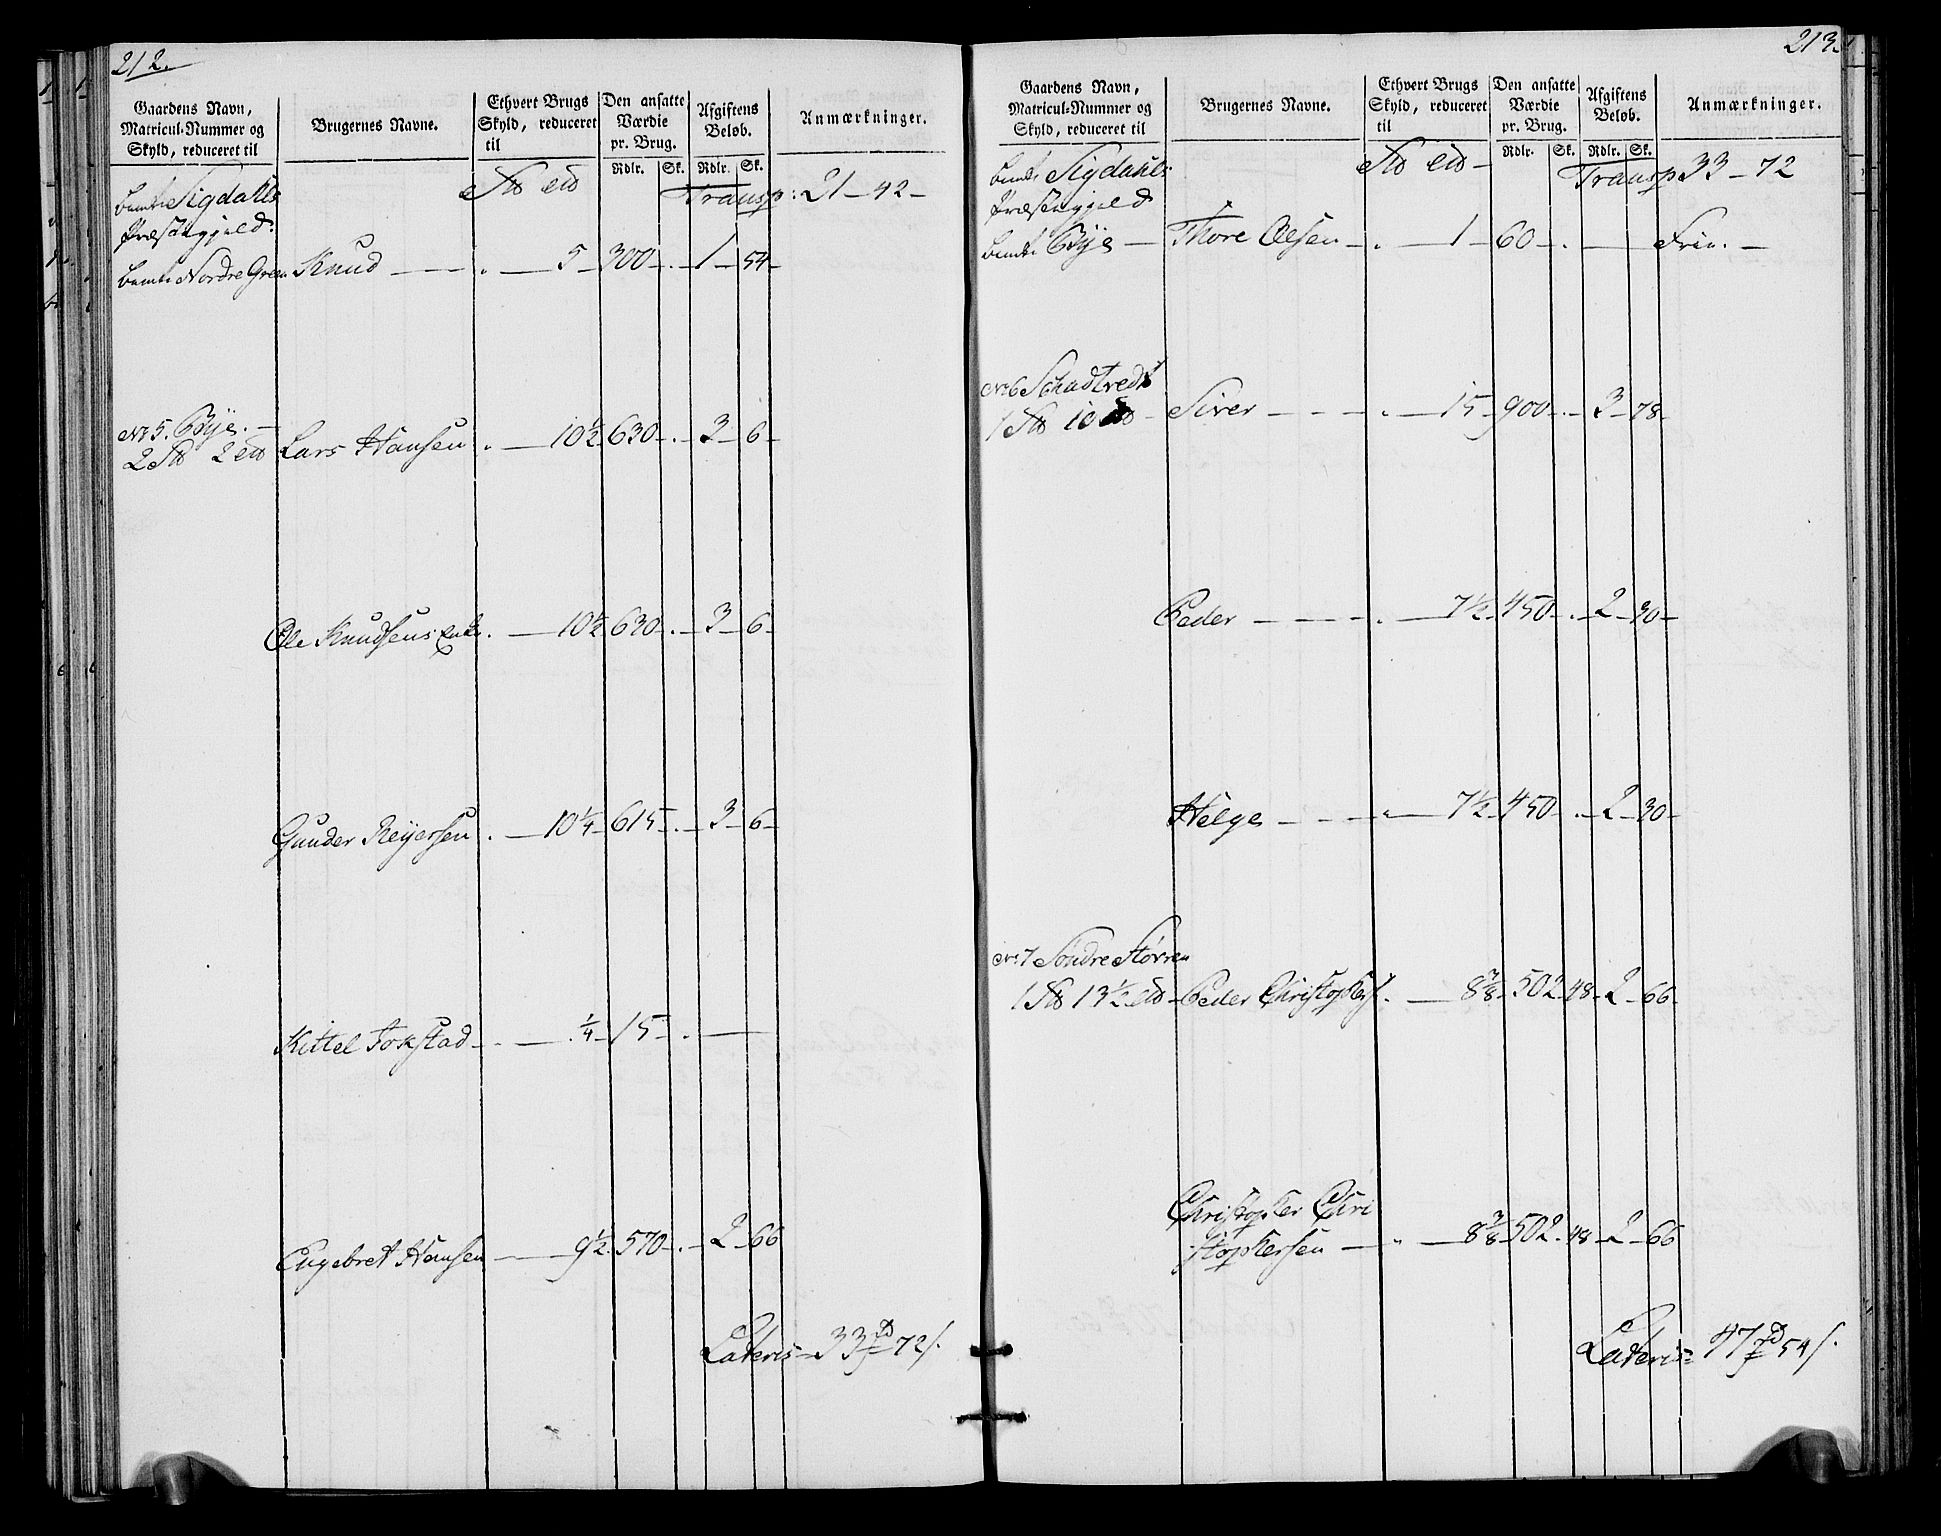 212.
Gaardens Navn, Matricul-Nummer og Skyld, reduceret til
Brugernes Navne.
Ethvert Brugs Skyld, reduceret til
Den ansatte Værdie pr. Brug.
Afgiftens Beløb.
Anmærkninger.
Rdlr. Sk. Rdlr. Sk.
Sigdahls Transp: 21 - 42 -
Præstegjeld.
Nordre Gren Knud - . - 5 - 300 - . - 1 - 54 -
No 5. Bye. -
2 2 Lars Hansen . - 10 1/2 630 - . - 3 - 6 -
Ole Knudsens Enke . - 10 1/2 630 - . - 3 - 6 -
Gunder Reyersen . - 10 1/4 - 615 - . - 3 - 6 -
Kittel Fokstad - . - . 1/4 - 15 - . -
Engebret Hansen - 9 1/2 - 570 - . - 2 - 66
Lateris - 33 rd 72 s.
213.
Gaardens Navn, Matricul-Nummer og Skyld, reduceret til
Brugernes Navne.
Ethvert Brugs Skyld, reduceret til
Den ansatte Værdie pr. Brug.
Afgiftens Beløb.
Anmærkninger.
Rdlr. Sk. Rdlr. Sk.
Sigdahls Transp 33 - 72
Præstegjeld
Bye - Thore Olsen - . - 1 - 60 - . - Frie. -
No 6 Schadtvedt
1 10 - Siver - - - . - 15 - 900 - . - 3 - 78 -
Peder - - - - . - 7 1/2 - 450 - . - 2 - 30 -
Helge - - - - 7 1/2 - 450 - . - 2 - 30 -
No 7 Søndre Størren
1 13 1/2 - Peder Christophers . - 8 3/8 - 502 - 48 - 2 - 66 -
Christopher Chri
stophersen - . - 8 3/8 502 - 48 - 2 - 66
Lateris - 47 rd 54 s.